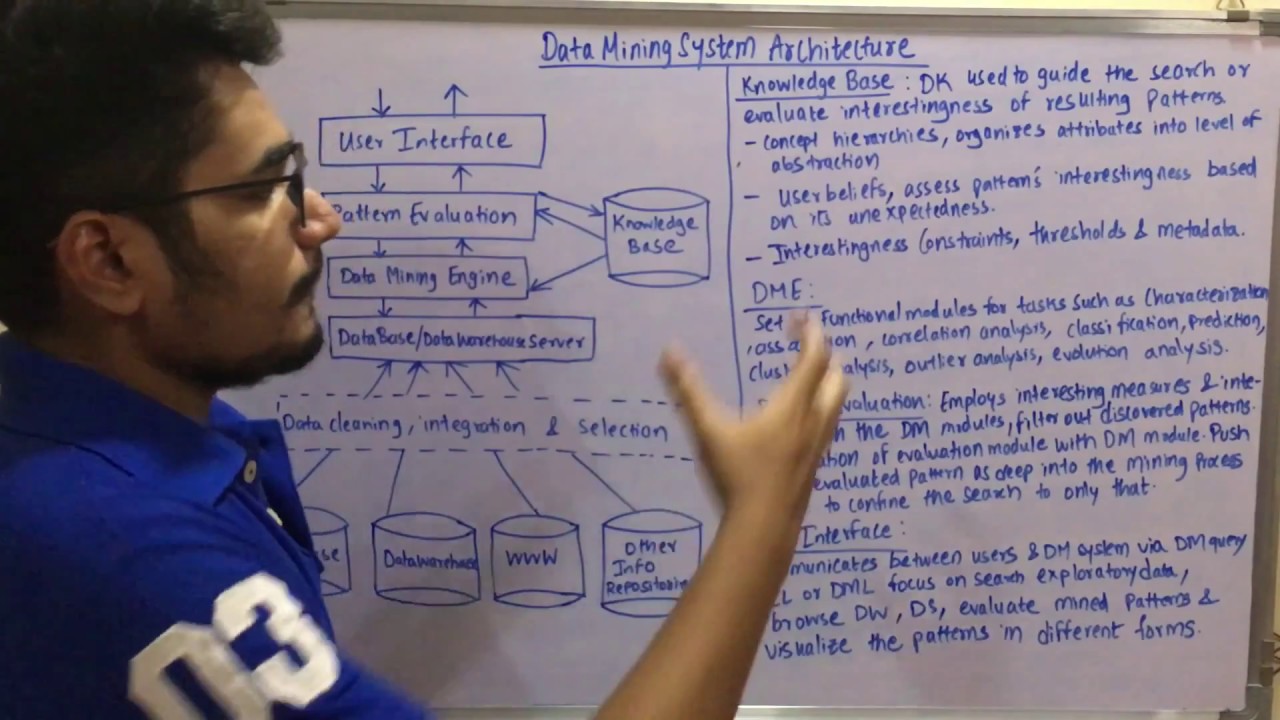 Data Mining System Architecture
User Interface
Pattern Evaluation
Data Mining Engine
DataBase/Datawarehouse Server
Knowledge
Base
Data cleaning, integration & Selection
se
Datawarehouse
WWW
Other
Info
Repositories
Knowledge Base : DK used to guide the search or
evaluate interestingness of resulting Patterns.
- concept hierarchies, organizes attributes into level of
abstraction
- User beliefs, assess pattern's interestingness based
on its unexpectedness.
- Interestingness Constraints, thresholds & metadata.
DME:
Set Functional modules for tasks such as Characterization
, ass on, correlation analysis, classification, prediction,
clus alysis, outlier analysis, evolution analysis.
valuation: Employs interesting measures & inte-
h the DM modules, filter out discovered patterns.
ation of evaluation module with DM module. Push
evaluated Pattern as deep into the mining Process
to confine the search to only that.
Interface :
municates between users & DM system via DM query
L or DML focus on search exploratory data,
browse DW, DS, evaluate mined Patterns &
visualize the patterns in different forms.
03